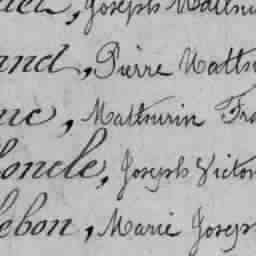 Joseph Mathu
and, Pierre Mathu
uc, Mathurin Fra
oncle, Joseph Victor
ebon, Marie Joseph